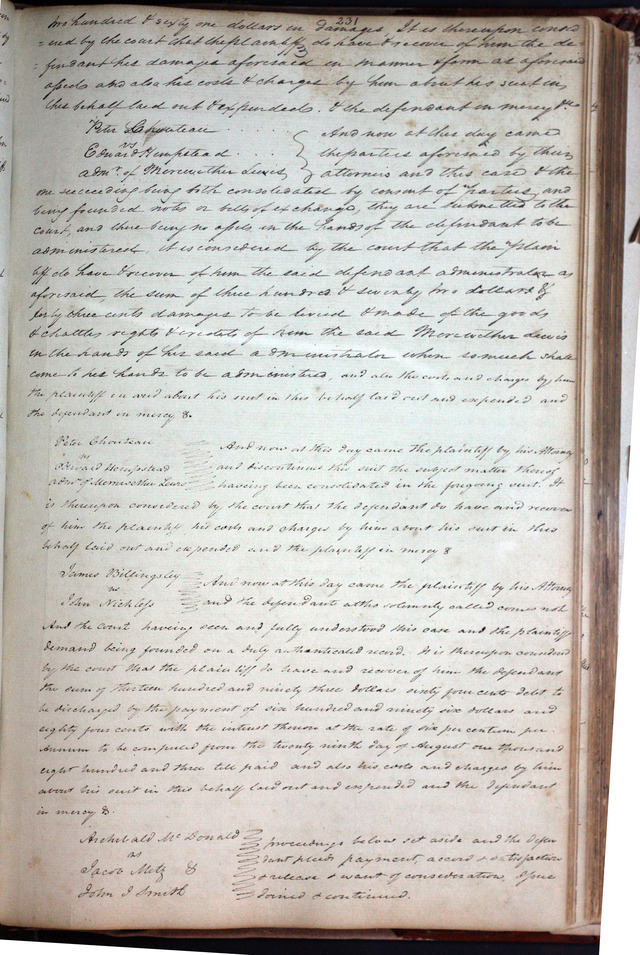 231
two hundred & sixty one dollars in damages. It is thereupon consid
=ered by the court that the plaintiff do have & recover of him the de
=fendant his damages aforesaid in manner & form as aforesaid
assessed and also his costs & charges by him about his suit in
this behalf laid out & expended. & the defendant in mercy &c
Peter Chouteau
vs
Edward Hempstead
admr. of Meriwether Lewis
And now at this day came
the parties aforesaid by their
attornies and this case & the
one succeeding being both consolidated by consent of parties, and
being founded notes or bills of exchange, they are submitted to the
court, and there being no assets in the hands of the defendant to be
administered, it is considered by the court that the plain
tiff do have & recover of him the said defendant administrator as
aforesaid, the sum of three hundred & seventy two dollars &
forty three cents damages to be levied & made of the goods
& chattles rights & credits of him the said Meriwether Lewis
in the hands of his said administrator when so much shall
come to his hands to be administered, and also the costs and charges by him
the plaintiff in and about his suit in this behalf laid out and expended and
the defendant in mercy &
Peter Chouteau
vs
Edward Hempstead
admr. of Merriwether Lewis
And now at this day came the plaintiff by his Attorney
and discontinues this suit the subject matter thereof
having been consolidated in the foregoing suit. It
is thereupon considered by the court that the defendant do have and recover
of him the plaintiff his costs and charges by him about his suit in this
behalf laid out and expended and the plaintiff in mercy &
James Billingsley
vs
John Nichless
And now at this day came the plaintiff by his Attorney
and the defendant altho solemnly called comes not
And the court having seen and fully understood this case and the plaintiffs
demand being founded on a duly authenticated record. It is thereupon considered
by the court that the plaintiff do have and recover of him the defendant
the sum of thirteen hundred and ninety three dollars sixty four cents debt to
be discharged by the payment of six hundred and ninety six dollars and
eighty four cents with the interest thereon at the rate of six per centum per
Annum to be computed from the twenty ninth day of August one thousand
eight hundred and three till paid and also his costs and charges by him
about his suit in this behalf laid out and expended and the defendant
in mercy &.
Archibald McDonald
vs
Jacob Metz &
John J Smith
proceedings below set aside and the defen
dant pleads payment, accord & satisfaction
& release & want of consideration, Issue
Joined & continued.